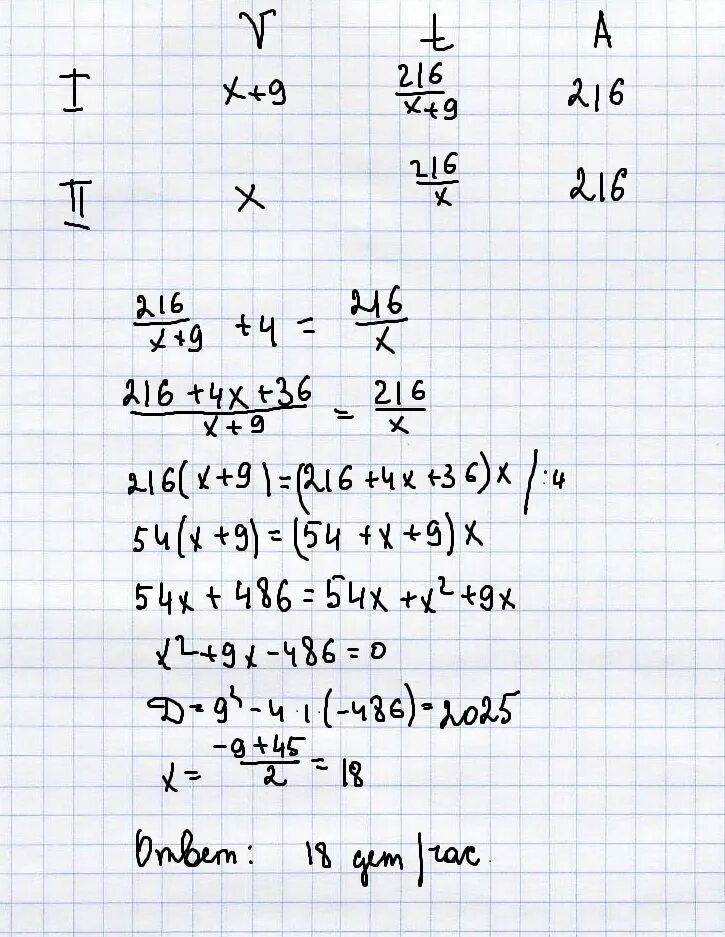 V t A
I x+9 216/(x+9) 216
II x 216/x 216
216/(x+9) +4 = 216/x
(216 +4x +36)/(x+9) = 216/x
216(x+9)=(216 +4x +36)x /:4
54(x+9)=(54 +x+9)x
54x + 486 = 54x +x² +9x
x² +9x -486 = 0
D = 9² - 4·1·(-486) = 2025
x = (-9+45)/2 = 18
Ответ: 18 дет/час.